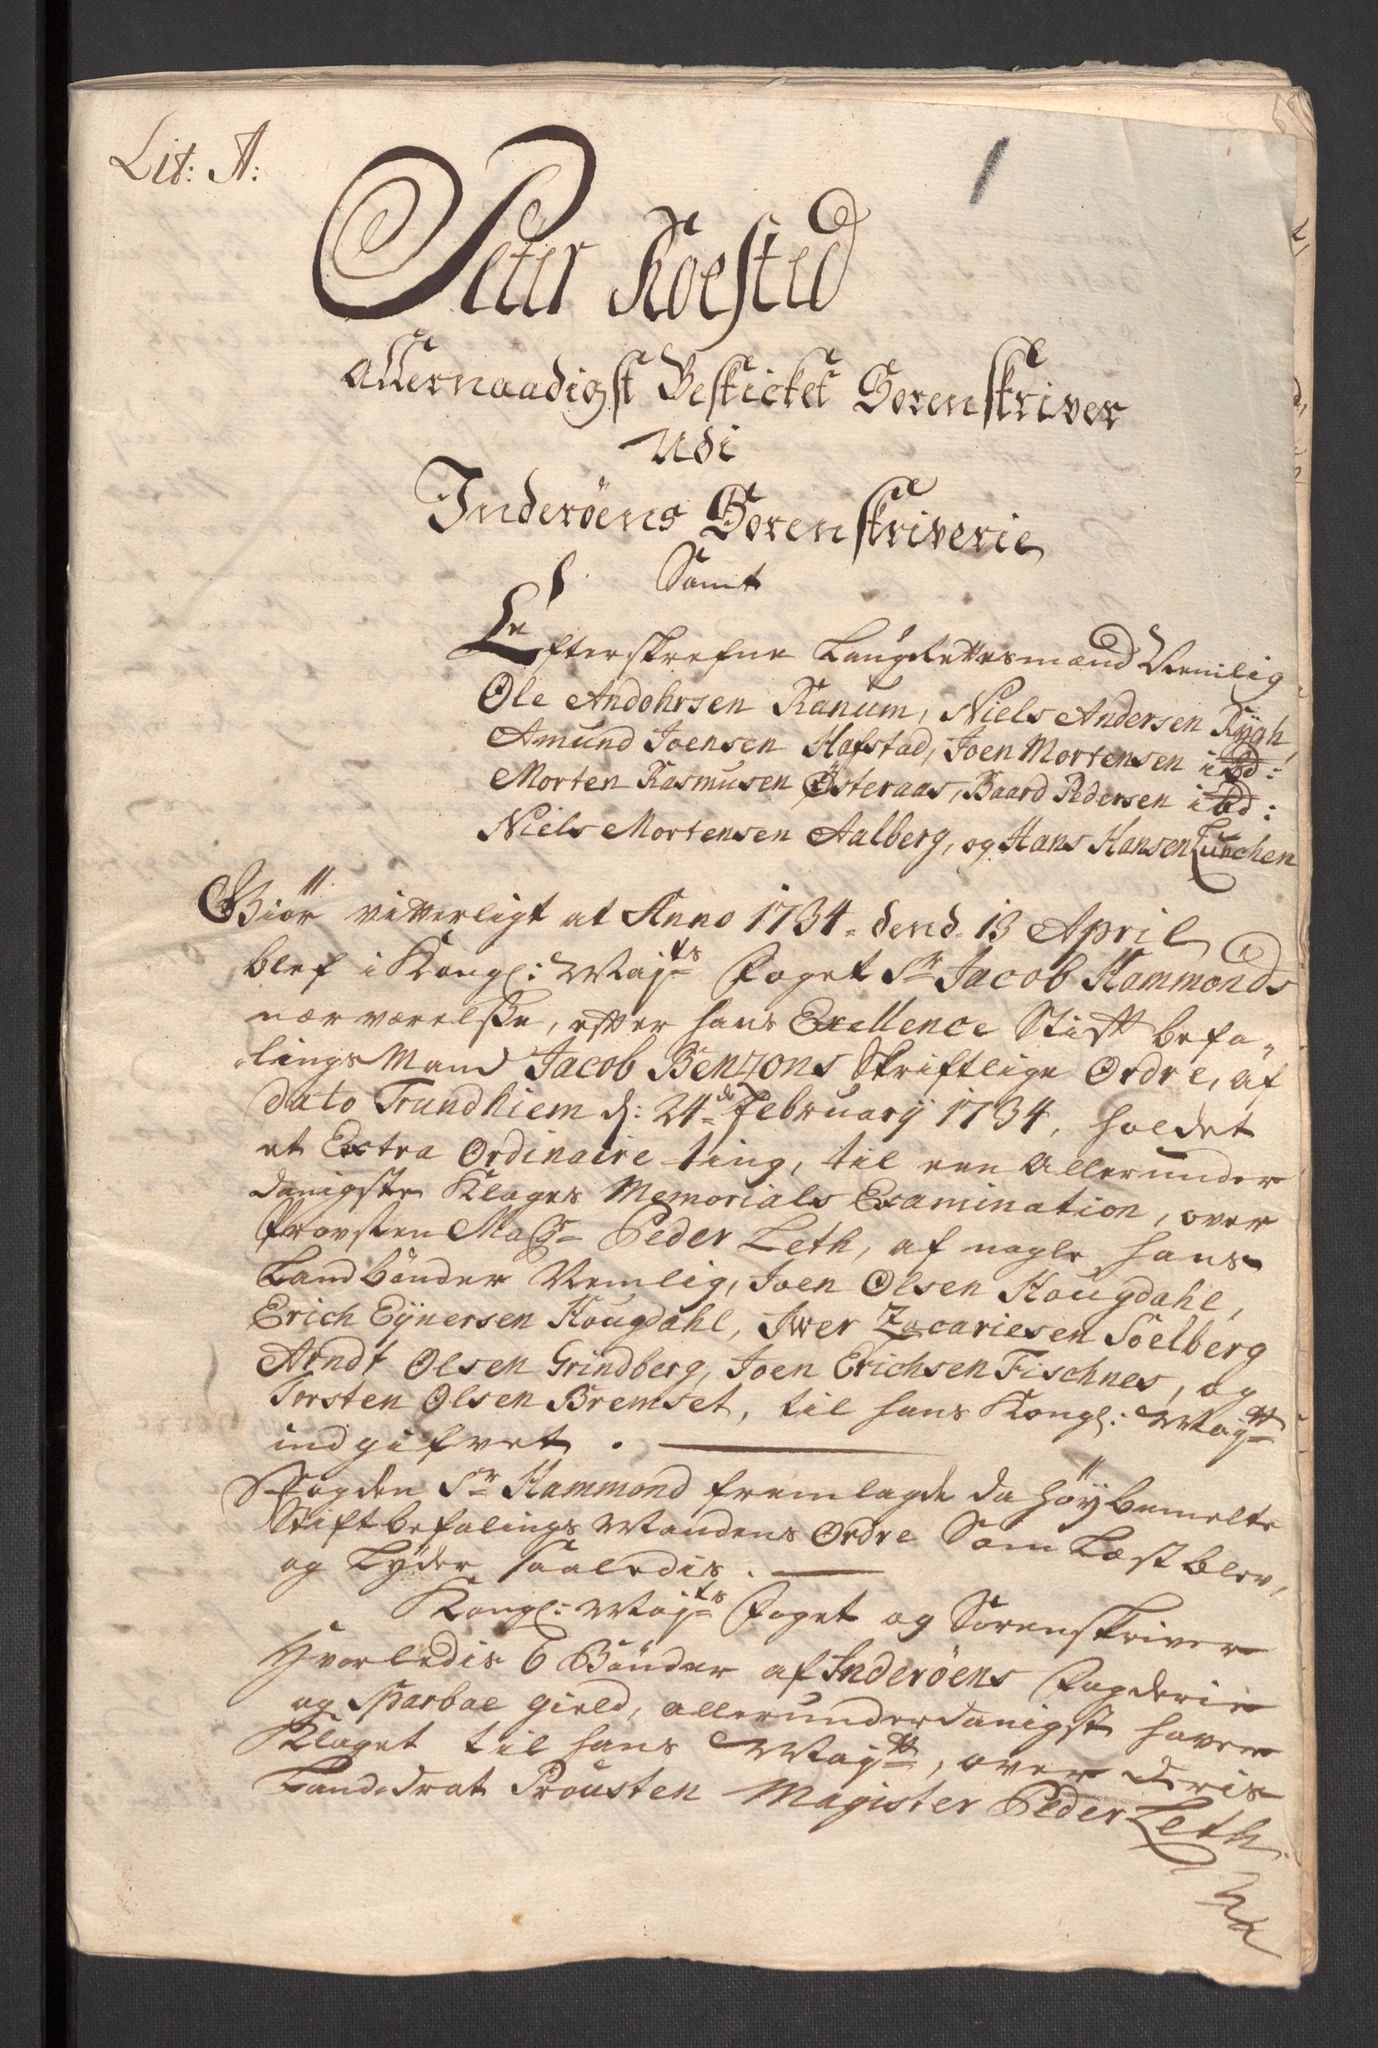 Lit: A:
1
Peter Koested
allernaadigst Beskicket Sorenskriver
Udi
Inderöens Sorenskriverie
Samt
Efterskrefne Laugrettesmænd Nemlig
Ole Andohrsen Kanum, Niels Andersen Rygh,
Amund Joensen Hafstad, Joen Mortensen ibd:
Morten Rasmusen Österaas, Baard Pedersen ibd:
Niels Mortensen Aalberg, og Hans Hansen Lunchen
Giör vitterligt at Anno 1734 dend 13 April
blef i Kongl: Maj.ts Foget Sr Jacob Hammonds
nærværelsse, efter hans Exellence Stift befa-
lings Mand Jacob Benzons Skriftlige Ordre, af
dato Trundhiem d: 24de February 1734, holdet
et Extra Ordinaire ting, til een Allerunder
danigste Klages Memorials Examination, over
Provsten Mag.r Peder Leth, af nogle hans
Landbönder Nemlig, Joen Olsen Hougdahl,
Erich Eynersen Hougdahl, Iwer Zacariesen Soelberg
Arndt Olsen Grindberg, Joen Erichsen Fischnes, og
Torsten Olsen Bremset, til hans Kongl: May.tt
indgifvet.
Fogden Sr Hammond fremlagde da höybemelte
Stiftbefalings Mandens Ordre Som Læst blev,
og Lyder saaledis.
Kongl: Maj.ts Foget og Sorenskriver
Hvorledis 6 Bönder af Inderöens Fogderie
og Sparboe gield, allerunderdanigst haver
Klaget til hans May.tt, over deris
Landsdrat Prousten Magister Peder Leth